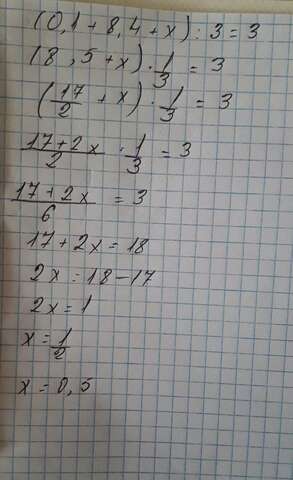 (0,1 + 8,4 + x) : 3 = 3
(8,5 + x) · 1/3 = 3
(17/2 + x) · 1/3 = 3
17 + 2x/2 · 1/3 = 3
17 + 2x/6 = 3
17 + 2x = 18
2x = 18 - 17
2x = 1
x = 1/2
x = 0,5